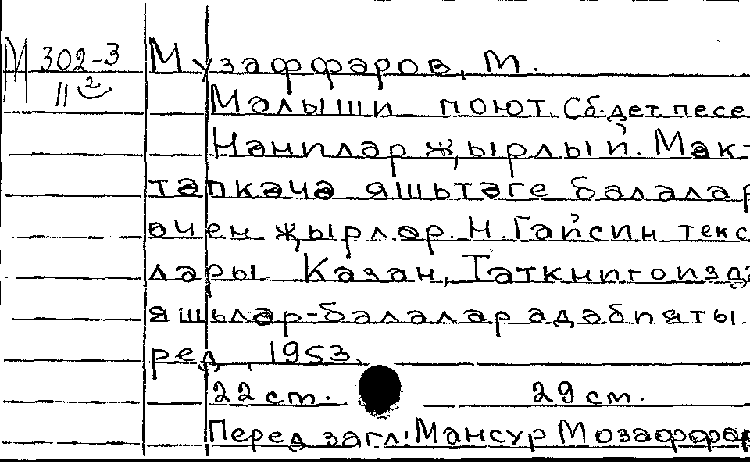 М 302-3 Музаффаров, М.
11 2
Малыши поют. Сб. дет. песе
Нәниләр җырлый. Мәк-
тәпкәчә яшьтәге балалар
өчен җырлар. Н. Гайсин текс
лары. Казан, Таткнигоизда
яшьләр-балалар әдәбияты
ред., 1953.
22 ст. 29 см.
Перед загл: Мансур Мозаффар